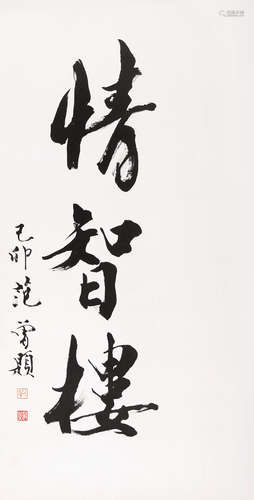 情智樓
己卯 范曾題